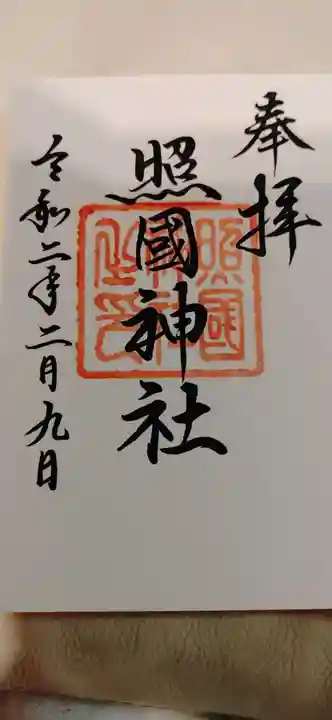 奉拝
照國神社
令和二年二月九日
照國神社之印